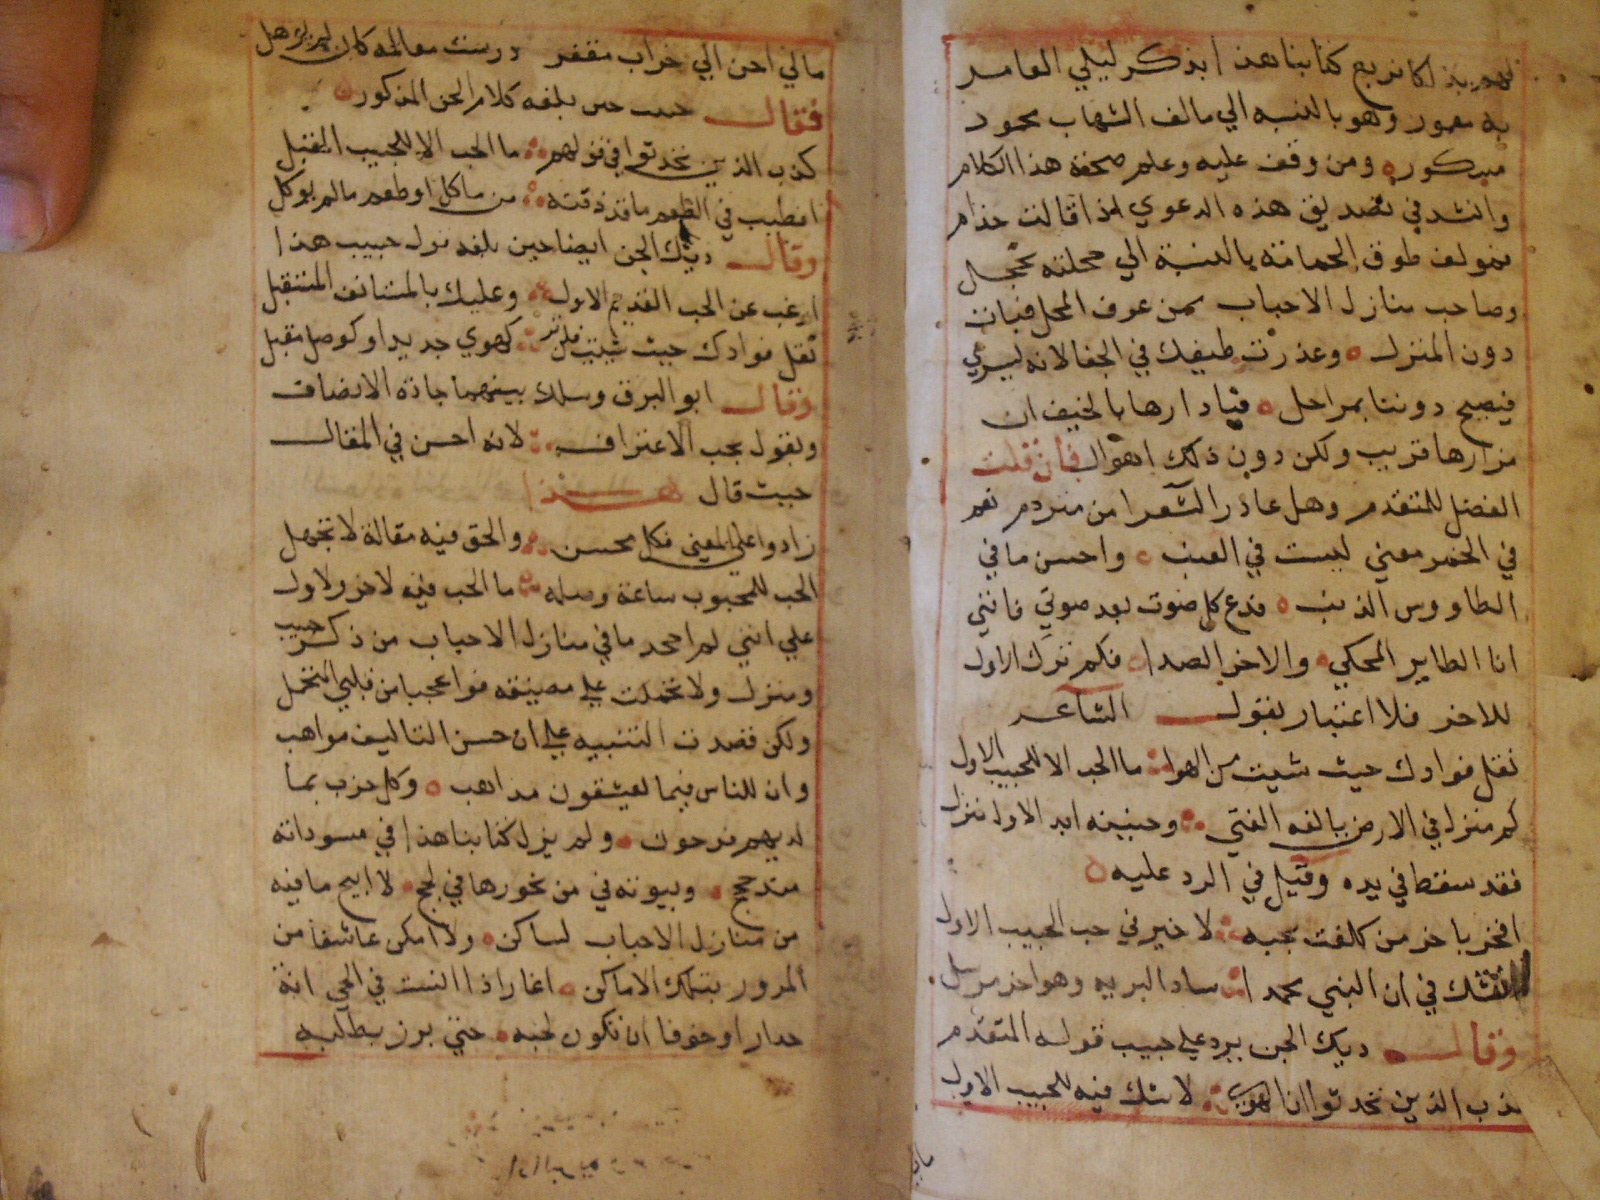 لهم بذلكا نربع كتابنا هذا بذكر ليلي العامر
يه معمور وهو بالنسبه الي مالف الشهاب محمود
مبكور ومن وقف عليه وعلم صحفة هذا الكلام
وانشد في تصديق هذه الدعوي اذا قالت حذام
فمولف طوق الحمامة بالنسبة الي محلته بحجل
وصاحب منازل الاحباب ممن عرف المحل فبات
دون المنزل وعذرت طيفك في الجفا لانه يسري
فيصبح دوننا بمراحل فيا دارها بالخيف ان
مزارها قريب ولكن دون ذلك اهوال فان قلت
الفضل للمتقدم وهل غادر الشعرا من متردم نعم
في الخمر معني ليست في العنب واحسن ما في
الطاووس الذنب فدع كل صوت بعد صوتي فانني
انا الطاير المحكي والاخر الصدا فكم ترك الاول
للاخر فلا اعتبار بقول الشاعر
نقل فوادك حيث شيت من الهوا ما الحب الا للحبيب الاول
كم منزل في الارض يالفه الفتي وحنينه ابدا لاول منزل
فقد سقط في يده وقيل في الرد عليه
افخر باخر من كلفت بحبه لا خير في حب الحبيب الاول
اتشك في ان النبي محمدا ساد البريه وهو اخر مرسل
وقال ديك الجن يرد علي حبيب قوله المتقدم
كذب الذين تحدثوا ان الهوي لا شك فيه للحبيب الاول
مالي احن الي خراب مقفر درست معالمه كان لم يوهل
فقال حبيب حين بلغه كلام الجن المذكور
كذب الذين تحدثوا في قولهم ما الحب الا للحبيب المقبل
افطيب في الطعم ما قد ذقته من ماكل او طعم ما لم يوكل
وقال ديك الجن ايضا حين بلغه قول حبيب هذا
ارغب عن الحب القديم الاول وعليك بالمستانف المستقبل
نقل فوادك حيث شيت فلن تر كهوي جديد او كوصل مقبل
وقال ابو البرق وسلك بينهما جادة الانصاف
ونقول يجب الاعتراف لانه احسن في المقال
حيث قال هذا
زادوا علي المعني فكل محسن والحق فيه مقالة لا تجهل
الحب للمحبوب ساعة وصله ما الحب فيه لاخر ولاول
علي انني لم اجحد ما في منازل الاحباب من ذكر حبيب
ومنزل ولا تحملت علي مصنفه فوا عجبا من قلبي المتحمل
ولكن قصدت التنبيه علي ان حسن التاليف مواهب
وان للناس فيما يعشقون مذاهب وكل حزب بما
لديهم فرحون ولم يزل كتابنا هذا في مسوداته
متدحج وبيوته في من بحورها في لجج لا ابيح ما فيه
من منازل الاحباب لساكن ولا امكن عاشقا من
المرور بتلك الاماكن اغار اذا انست في الحي انة
حذارا وخوفا ان تكون لحبه حتي برز بطلبه